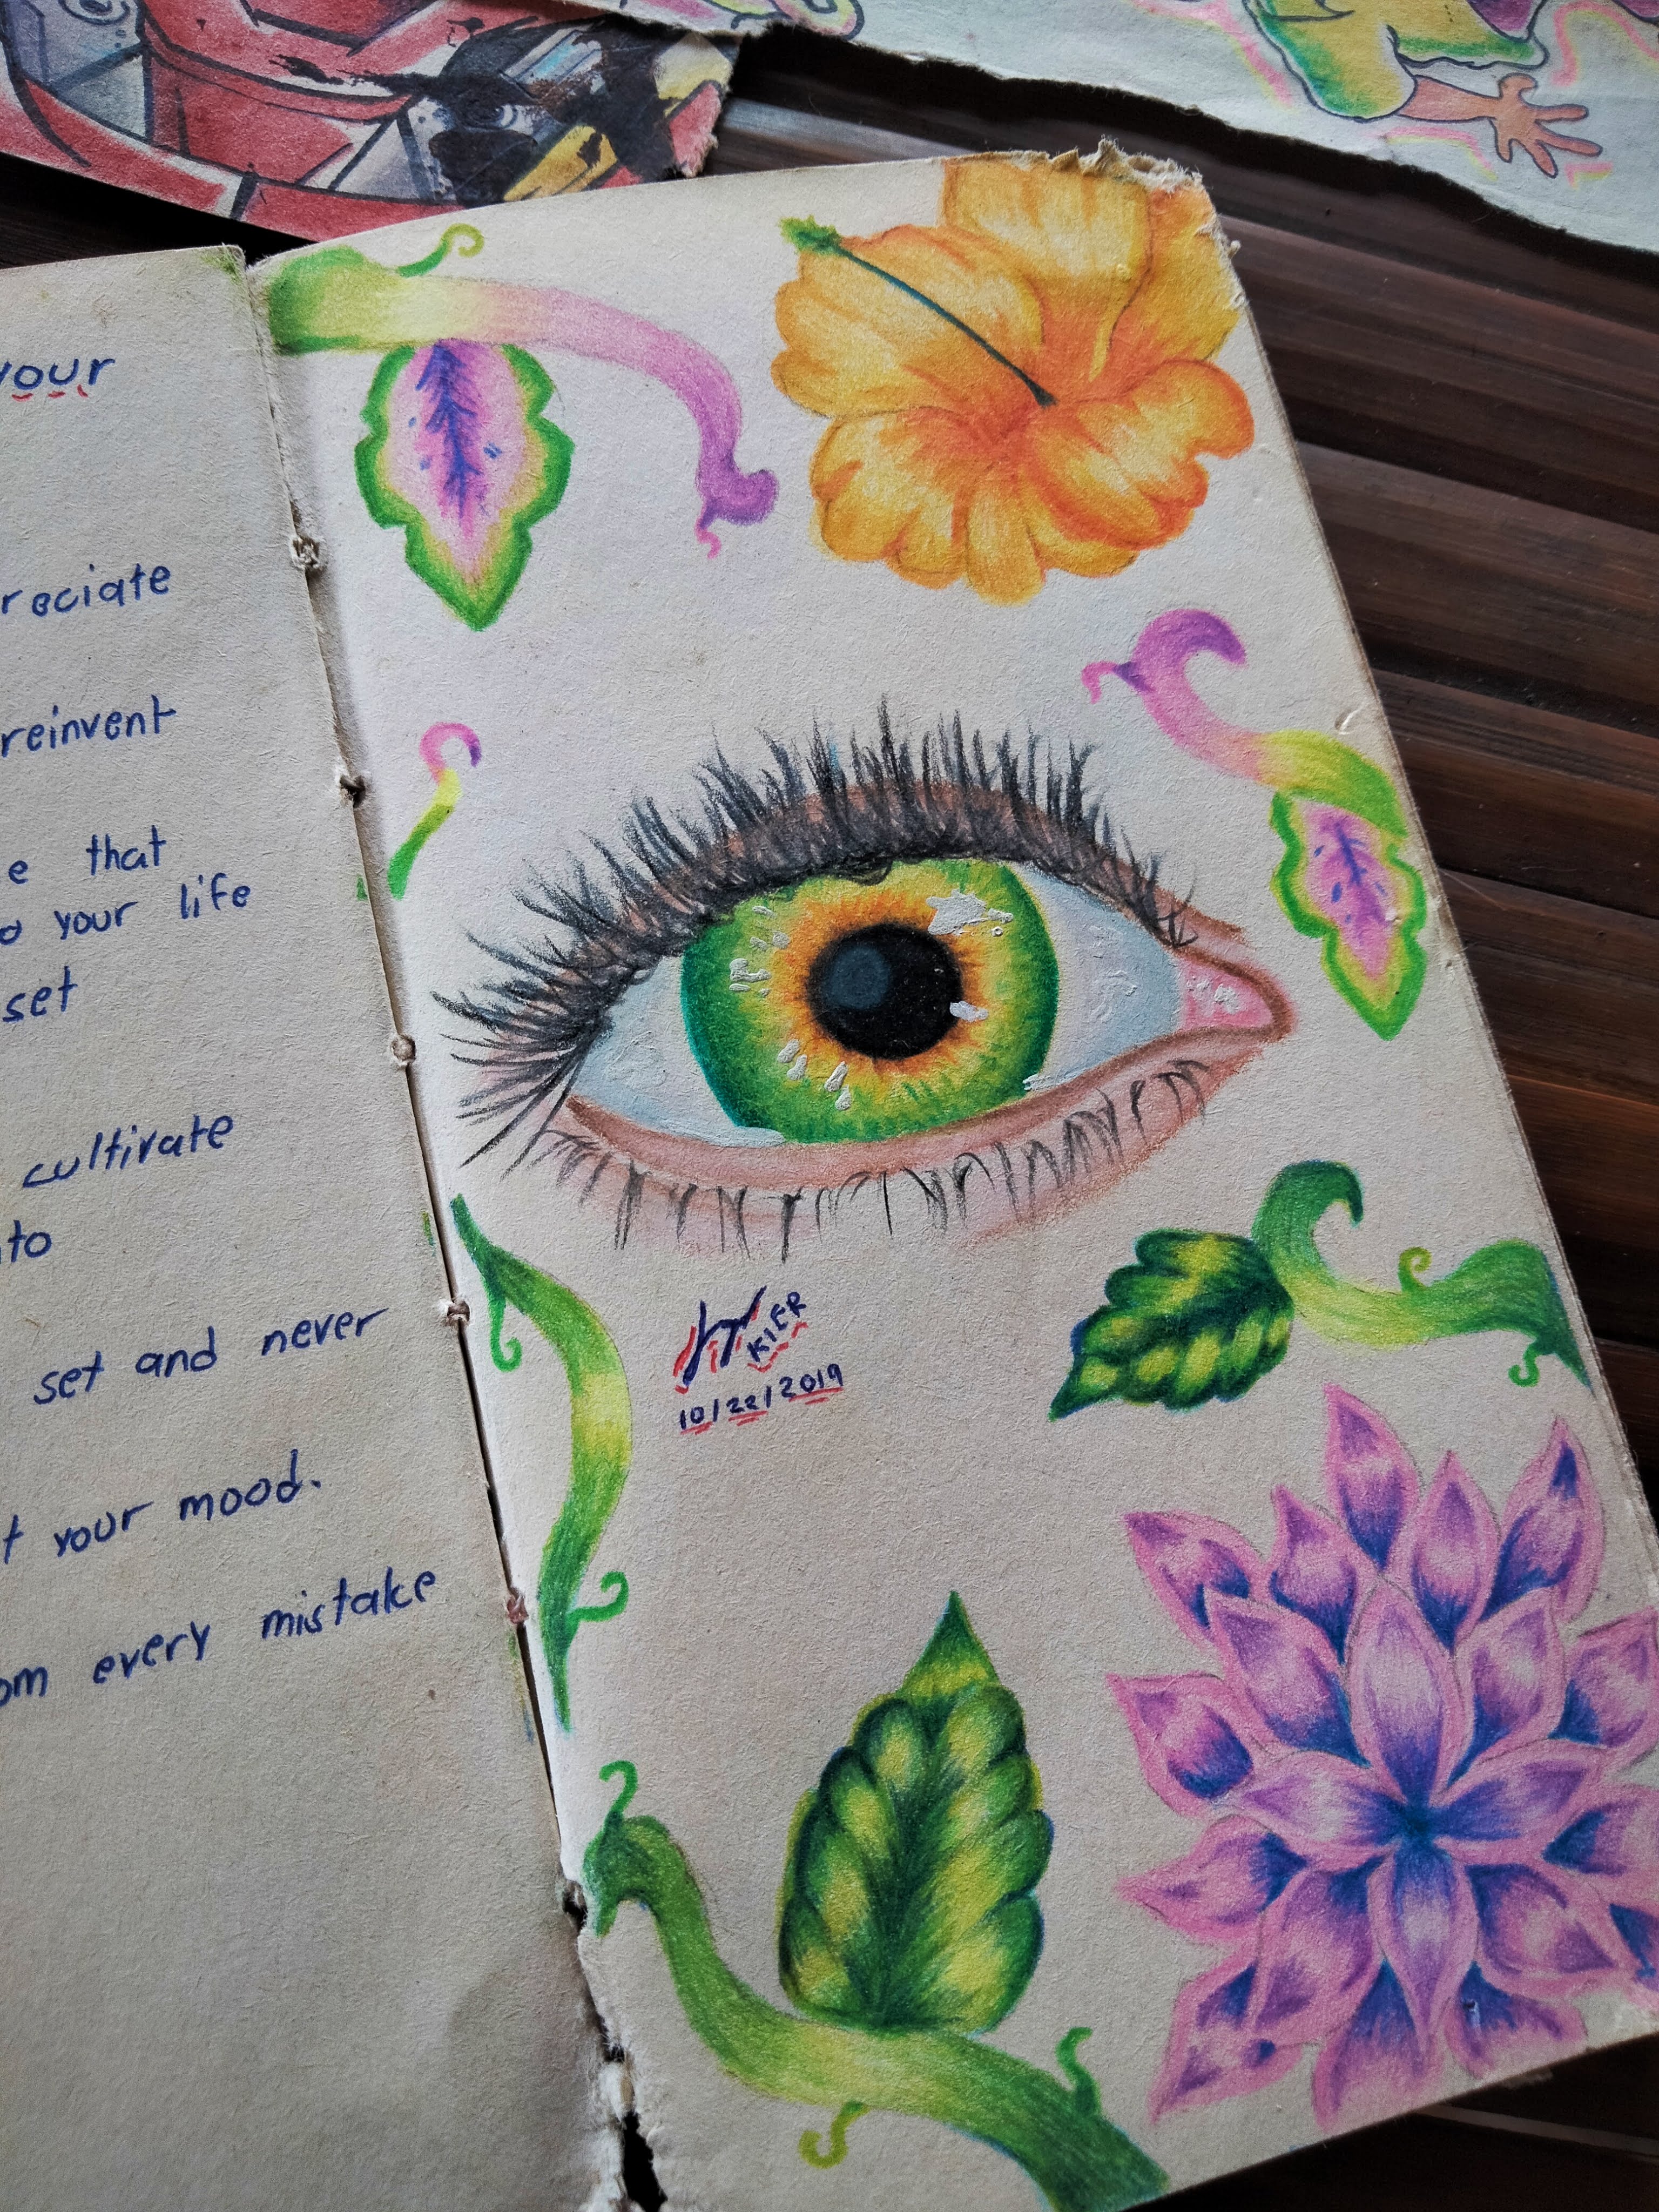 your
reciate
reinvent
e that
o your life
set
cultivate
to
set and never
t your mood.
om every mistake
KIER
10/22/2019